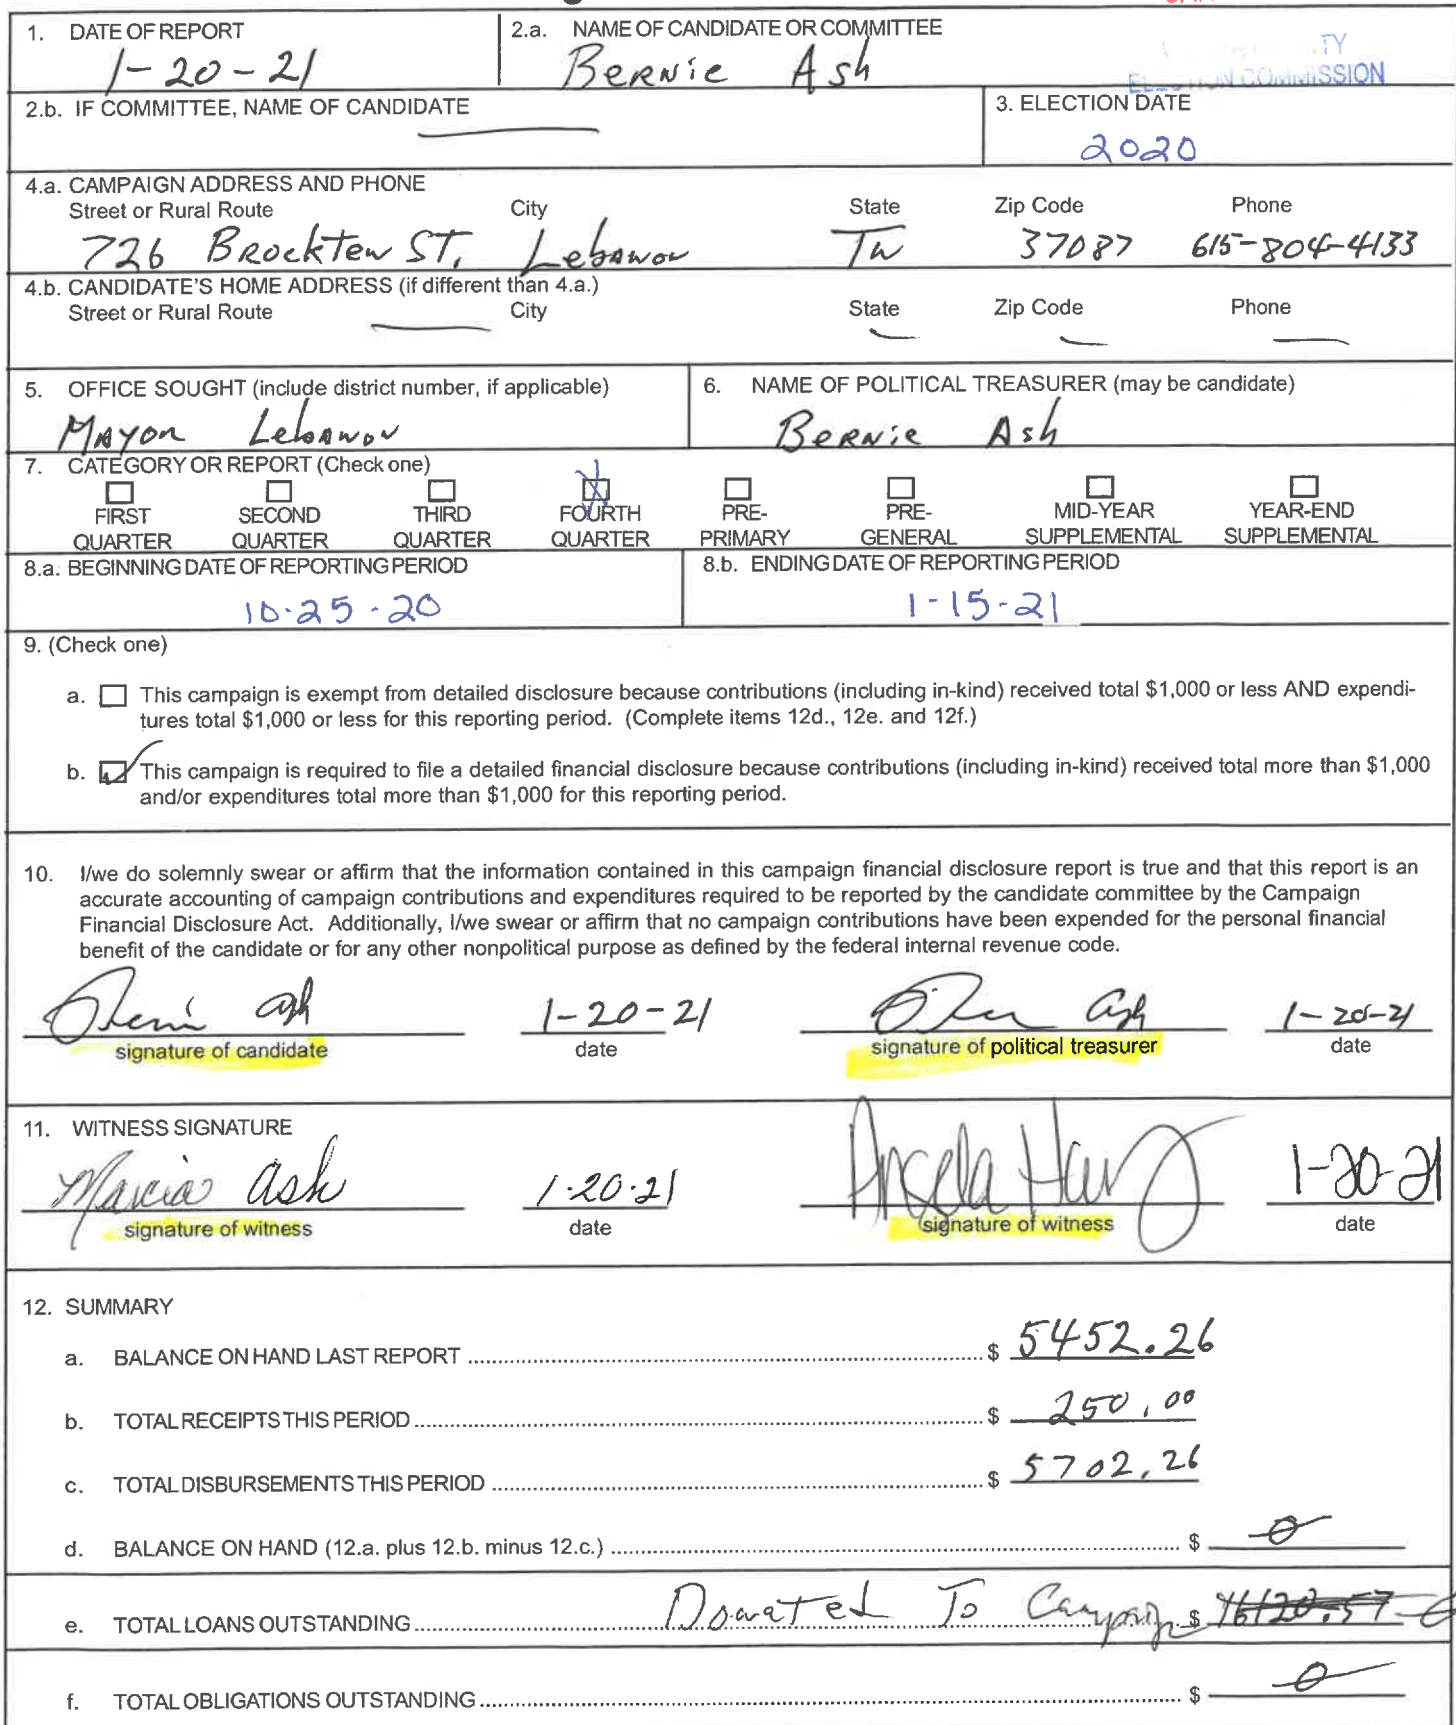 1. DATE OF REPORT
1-20-21
2.a. NAME OF CANDIDATE OR COMMITTEE
Bernie Ash
ELECTION COMMISSION
2.b. IF COMMITTEE, NAME OF CANDIDATE
3. ELECTION DATE
2020
4.a. CAMPAIGN ADDRESS AND PHONE
Street or Rural Route City State Zip Code Phone
726 Brockten ST, Lebanon Tn 37087 615-804-4133
4.b. CANDIDATE'S HOME ADDRESS (if different than 4.a.)
Street or Rural Route City State Zip Code Phone
5. OFFICE SOUGHT (include district number, if applicable)
Mayor Lebanon
6. NAME OF POLITICAL TREASURER (may be candidate)
Bernie Ash
7. CATEGORY OR REPORT (Check one)
FIRST QUARTER
SECOND QUARTER
THIRD QUARTER
FOURTH QUARTER
PRE-PRIMARY
PRE-GENERAL
MID-YEAR SUPPLEMENTAL
YEAR-END SUPPLEMENTAL
8.a. BEGINNING DATE OF REPORTING PERIOD
10-25-20
8.b. ENDING DATE OF REPORTING PERIOD
1-15-21
9. (Check one)
a. This campaign is exempt from detailed disclosure because contributions (including in-kind) received total $1,000 or less AND expendi-
tures total $1,000 or less for this reporting period. (Complete items 12d., 12e. and 12f.)
b. This campaign is required to file a detailed financial disclosure because contributions (including in-kind) received total more than $1,000
and/or expenditures total more than $1,000 for this reporting period.
10. I/we do solemnly swear or affirm that the information contained in this campaign financial disclosure report is true and that this report is an
accurate accounting of campaign contributions and expenditures required to be reported by the candidate committee by the Campaign
Financial Disclosure Act. Additionally, I/we swear or affirm that no campaign contributions have been expended for the personal financial
benefit of the candidate or for any other nonpolitical purpose as defined by the federal internal revenue code.
Ash 1-20-21 Ash 1-20-21
signature of candidate date signature of political treasurer date
11. WITNESS SIGNATURE
Marcia Ash 1-20-21 Angela 1-20-21
signature of witness date signature of witness date
12. SUMMARY
a. BALANCE ON HAND LAST REPORT $ 5452.26
b. TOTAL RECEIPTS THIS PERIOD $ 250.00
c. TOTAL DISBURSEMENTS THIS PERIOD $ 5702.26
d. BALANCE ON HAND (12.a. plus 12.b. minus 12.c.) $ 0
e. TOTAL LOANS OUTSTANDING Donated To Campaign $
f. TOTAL OBLIGATIONS OUTSTANDING $ 0